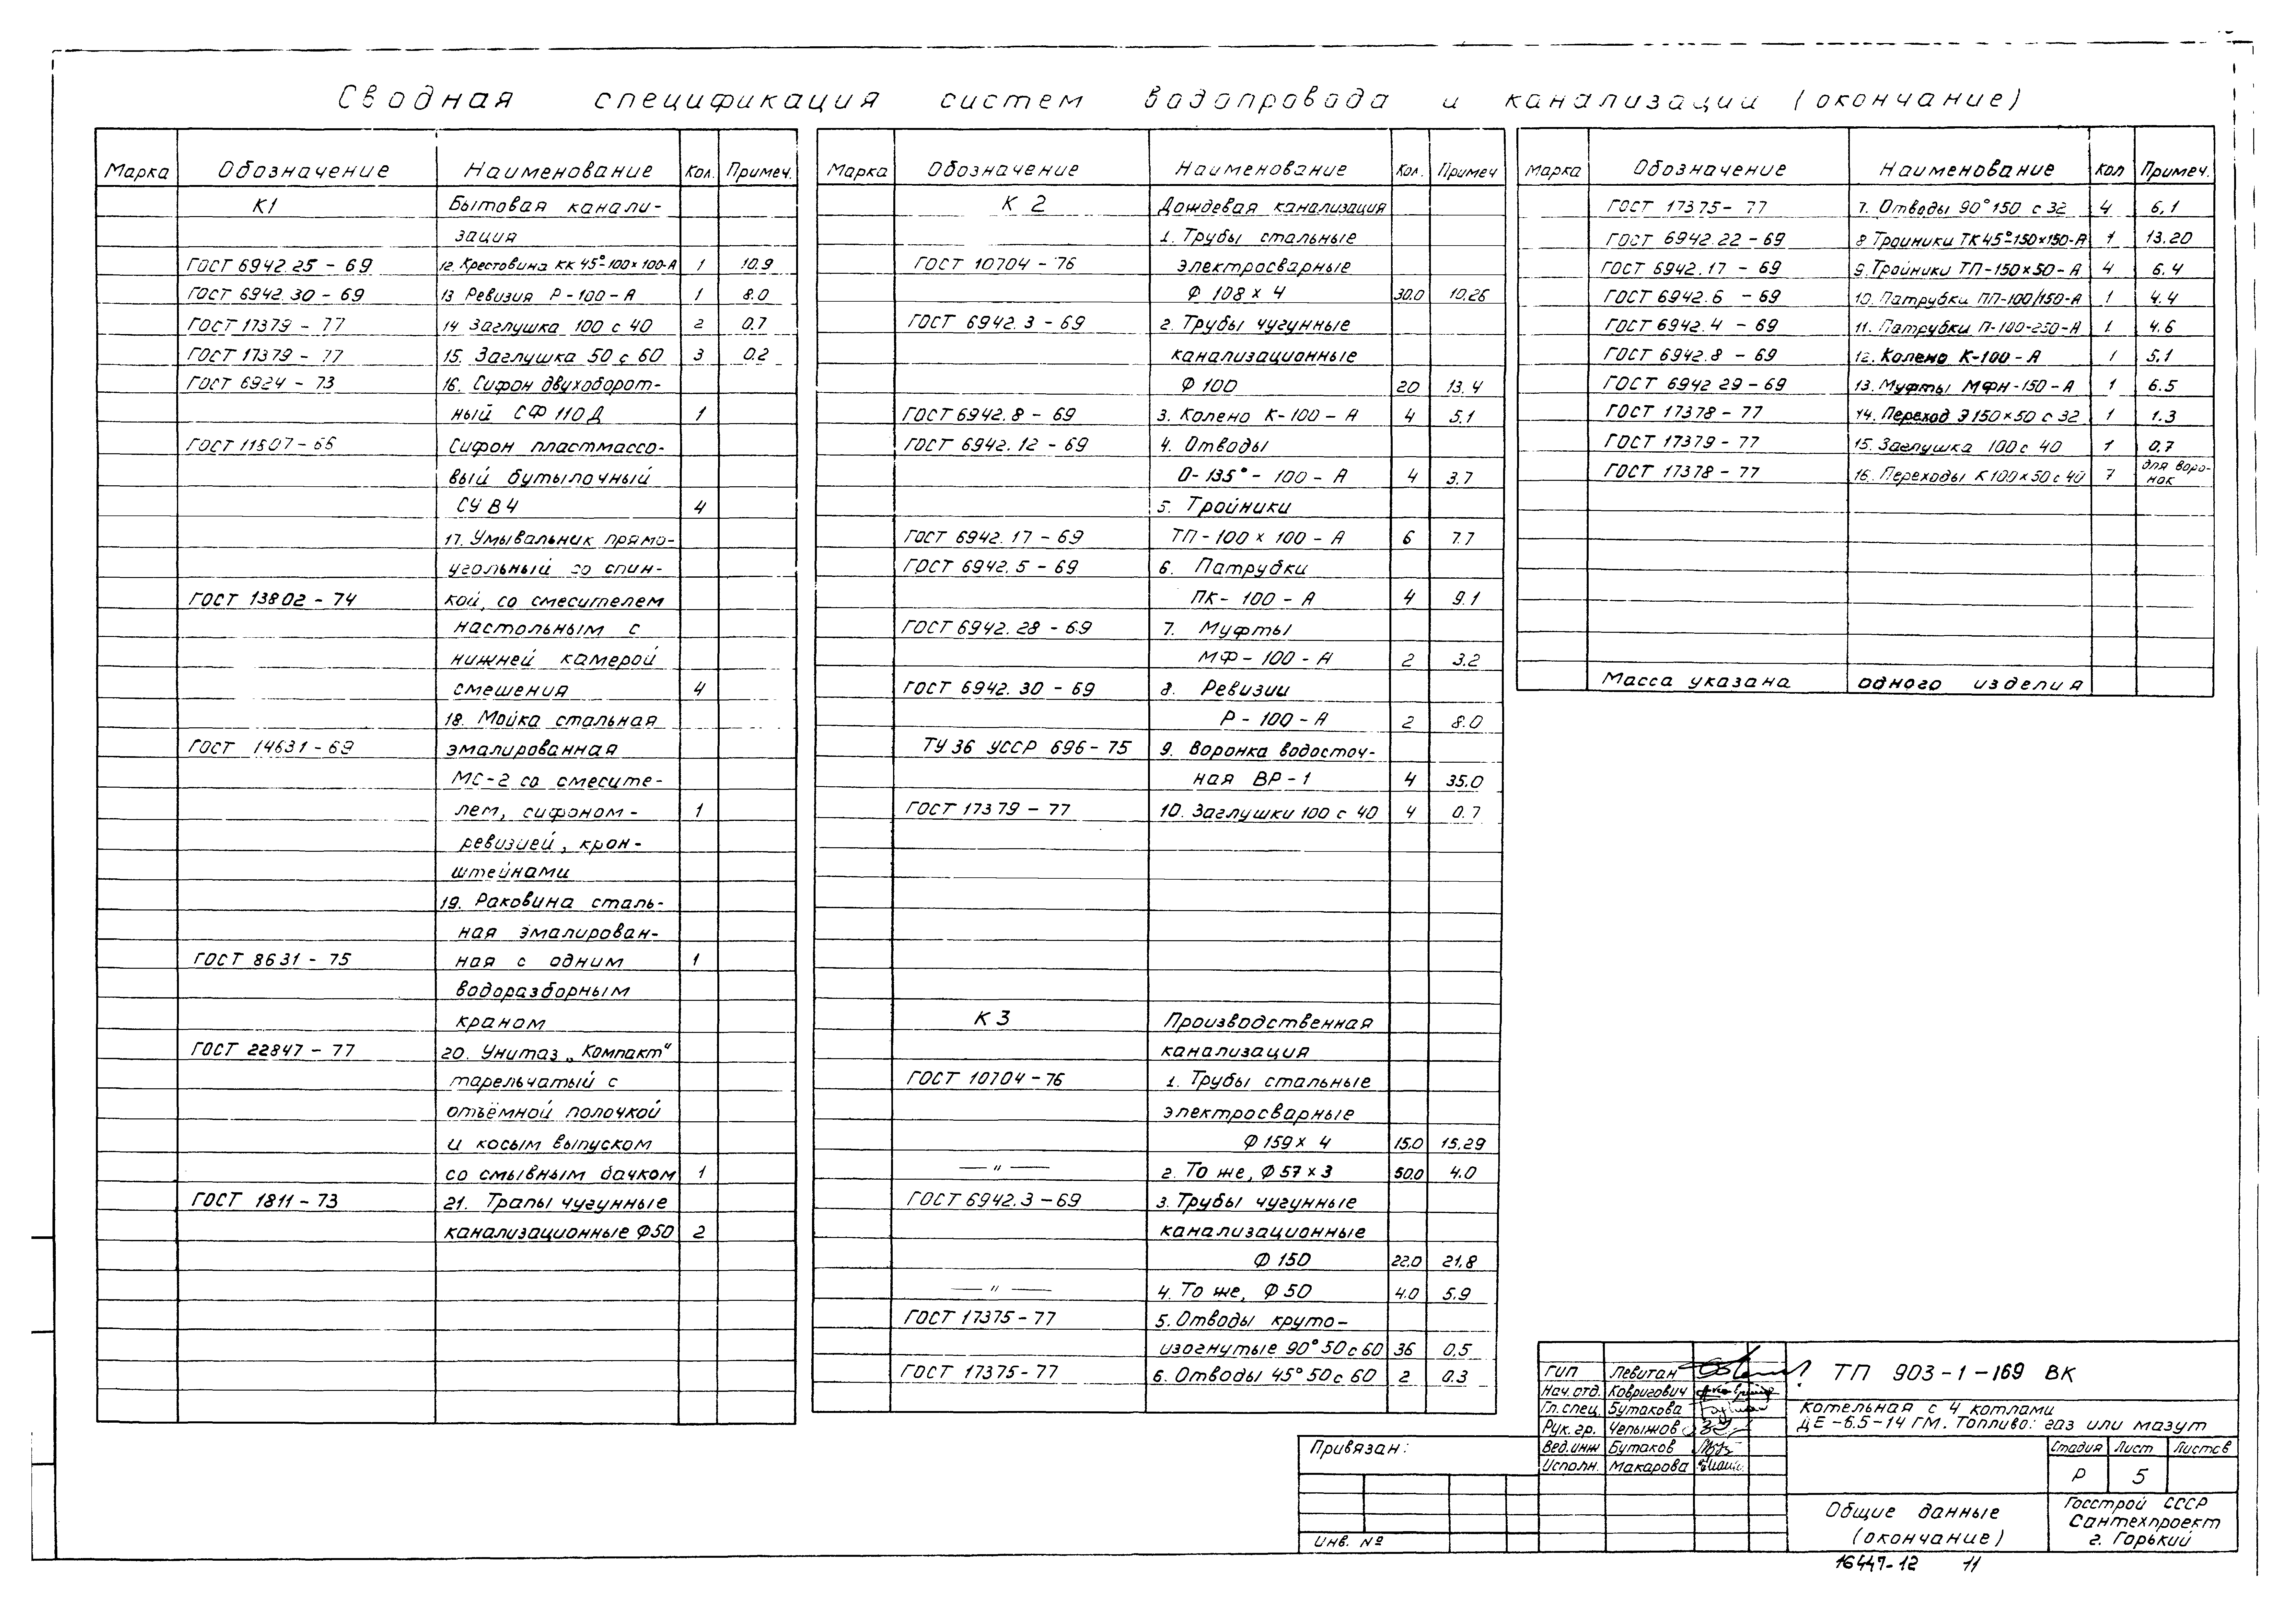 Сводная спецификация систем водопровода и канализации (окончание)
Марка Обозначение Наименование Кол. Примеч.
К1 Бытовая канали-
зация
ГОСТ 6942.25 - 69 12. Крестовина КК 45°-100×100-А 1 10.9
ГОСТ 6942.30 - 69 13 Ревизия Р-100-А 1 8.0
ГОСТ 17379 - 77 14 Заглушка 100 с 40 2 0.7
ГОСТ 17379 - 77 15. Заглушка 50 с 60 3 0.2
ГОСТ 6924 - 73 16. Сифон двухоборот-
ный СФ 110Д 1
ГОСТ 11507-66 Сифон пластмассо-
вый бутылочный
СУ В4 4
17. Умывальник прямо-
угольный со спин-
ГОСТ 13802 - 74 кой, со смесителем
настольным с
нижней камерой
смешения 4
18. Мойка стальная
ГОСТ 14631-69 эмалированная
МС-2 со смесите-
лем, сифоном- 1
ревизией, крон-
штейнами
19. Раковина сталь-
ная эмалирован-
ГОСТ 8631 - 75 ная с одним 1
водоразборным
краном
ГОСТ 22847 - 77 20. Унитаз „Компакт“
тарельчатый с
отъёмной полочкой
и косым выпуском
со смывным бачком 1
ГОСТ 1811 - 73 21. Трапы чугунные
канализационные Ф50 2
Марка Обозначение Наименование Кол. Примеч
К 2 Дождевая канализация
1. Трубы стальные
ГОСТ 10704 - 76 электросварные
Ф 108 × 4 30.0 10.26
ГОСТ 6942.3 - 69 2. Трубы чугунные
канализационные
Ф 100 20 13.4
ГОСТ 6942.8 - 69 3. Колено К-100-А 4 5.1
ГОСТ 6942.12 - 69 4. Отводы
О-135°-100-А 4 3.7
5. Тройники
ГОСТ 6942.17 - 69 ТП-100×100-А 6 7.7
ГОСТ 6942.5 - 69 6. Патрубки
ПК-100-А 4 9.1
ГОСТ 6942.28 - 69 7. Муфты
МФ-100-А 2 3.2
ГОСТ 6942.30 - 69 8. Ревизии
Р-100-А 2 8.0
ТУ 36 УССР 696-75 9. Воронка водосточ-
ная ВР-1 4 35.0
ГОСТ 17379 - 77 10. Заглушки 100 с 40 4 0.7
К 3 Производственная
канализация
ГОСТ 10704 - 76 1. Трубы стальные
электросварные
Ф 159 × 4 15.0 15.29
— " — 2. То же, Ф 57 × 3 50.0 4.0
ГОСТ 6942.3 - 69 3. Трубы чугунные
канализационные
Ф 150 22.0 21.8
— " — 4. То же, Ф 50 4.0 5.9
ГОСТ 17375 - 77 5. Отводы круто-
изогнутые 90° 50 с 60 36 0.5
ГОСТ 17375 - 77 6. Отводы 45° 50 с 60 2 0.3
Марка Обозначение Наименование Кол Примеч.
ГОСТ 17375 - 77 7. Отводы 90° 150 с 32 4 6.1
ГОСТ 6942.22 - 69 8 Тройники ТК 45°-150×150-А 1 13.20
ГОСТ 6942.17 - 69 9. Тройники ТП-150×50-А 4 6.4
ГОСТ 6942.6 - 69 10. Патрубки ПП-100/150-А 1 4.4
ГОСТ 6942.4 - 69 11. Патрубки П-100-250-А 1 4.6
ГОСТ 6942.8 - 69 12. Колено К-100-А 1 5.1
ГОСТ 6942 29 - 69 13. Муфты МФН-150-А 1 6.5
ГОСТ 17378 - 77 14. Переход Э 150×50 с 32 1 1.3
ГОСТ 17379 - 77 15. Заглушка 100 с 40 1 0.7
ГОСТ 17378 - 77 16. Переходы К 100×50 с 40 7 для воро-
нок
Масса указана одного изделия
ГИП Левитан
Нач. отд. Ковригович
Гл. спец. Бутакова
Рук. гр. Чепыжов
Вед. инж Бутаков
Исполн. Макарова
ТП 903-1-169 ВК
Котельная с 4 котлами
ДЕ-6.5-14 ГМ. Топливо: газ или мазут
Стадия Лист Листов
Р 5
Общие данные
(окончание)
Госстрой СССР
Сантехпроект
г. Горький
Привязан:
Инв. №
16447-12 11